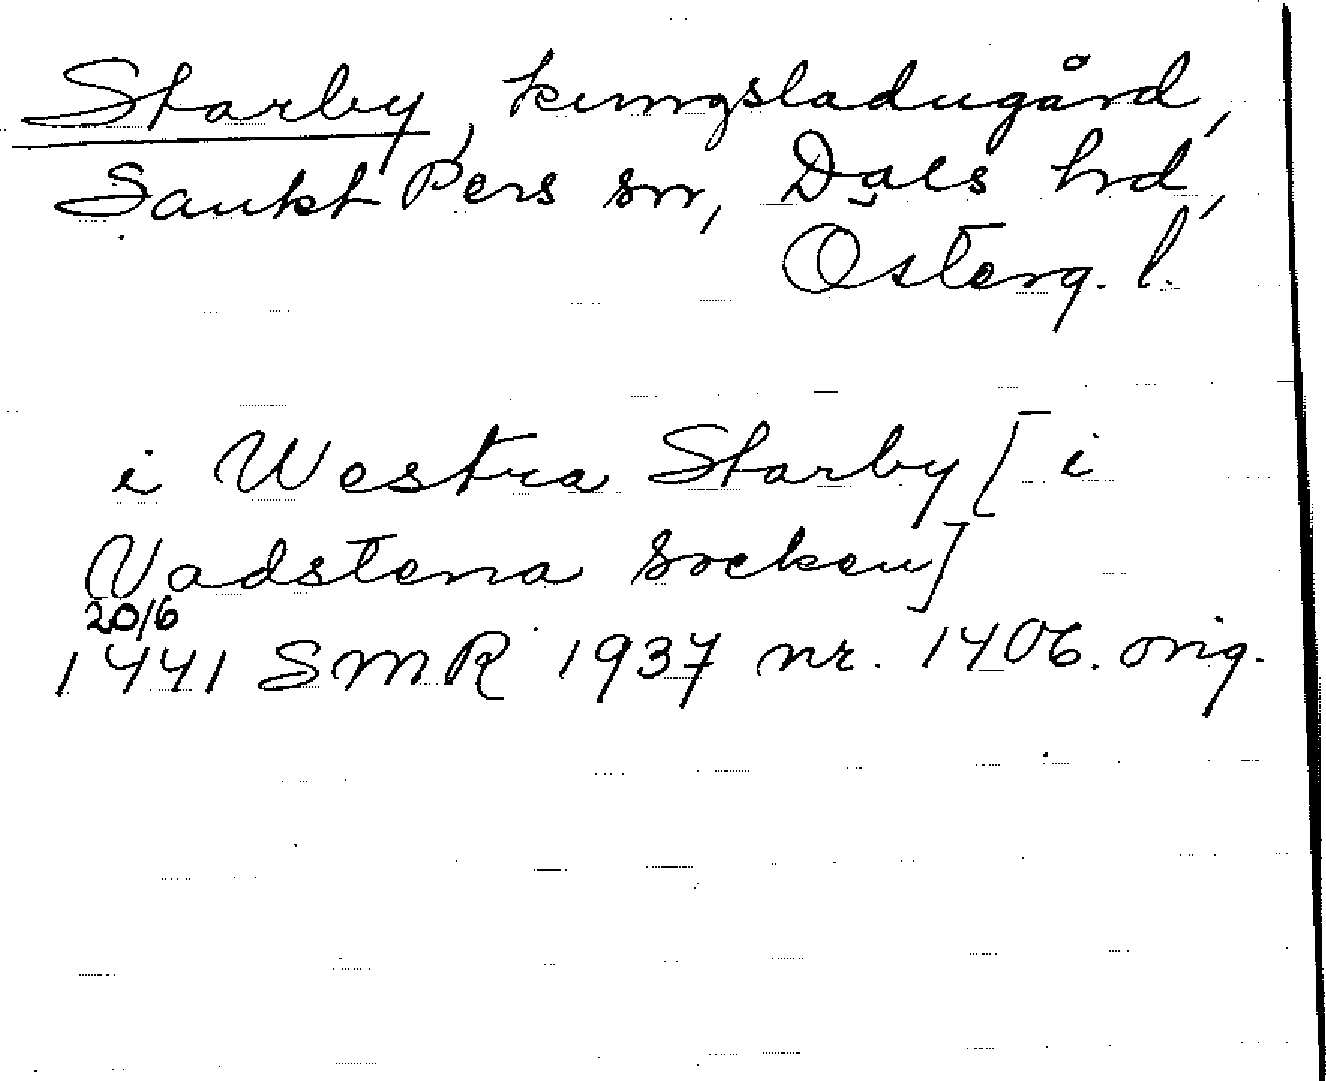 Starby, kungsladugård,
Sankt Pers sn, Dals hd,
Österg. l.
i Westra Starby [i
Vadstena socken]
20/6
1441 SMR 1937 nr. 1406. orig.